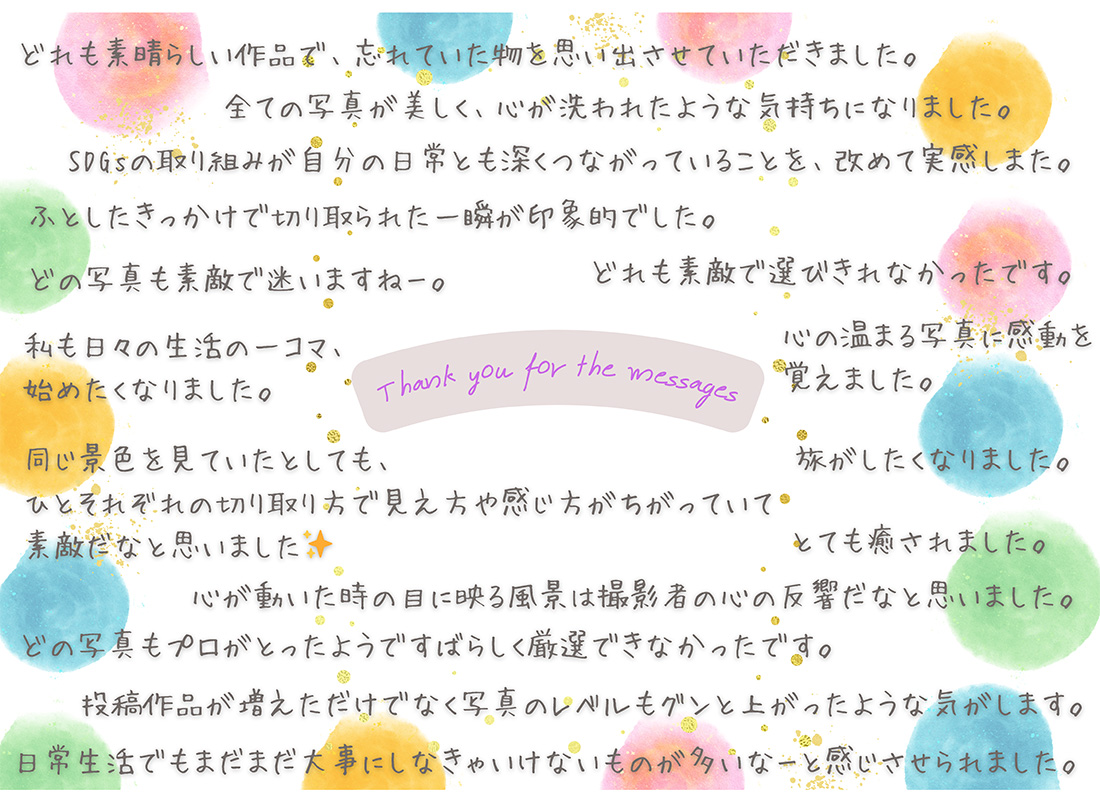 どれも素晴らしい作品で、忘れていた物を思い出させていただきました。
全ての写真が美しく、心が洗われたような気持ちになりました。
SDGsの取り組みが自分の日常とも深くつながっていることを、改めて実感しまた。
ふとしたきっかけで切り取られた一瞬が印象的でした。
どの写真も素敵で迷いますねー。
どれも素敵で選びきれなかったです。
私も日々の生活の一コマ、
始めたくなりました。
Thank you for the messages
心の温まる写真に感動を
覚えました。
同じ景色を見ていたとしても、
ひとそれぞれの切り取り方で見え方や感じ方がちがっていて
素敵だなと思いました✨
旅がしたくなりました。
とても癒されました。
心が動いた時の目に映る風景は撮影者の心の反響だなと思いました。
どの写真もプロがとったようですばらしく厳選できなかったです。
投稿作品が増えただけでなく写真のレベルもグンと上がったような気がします。
日常生活でもまだまだ大事にしなきゃいけないものが多いなーと感じさせられました。